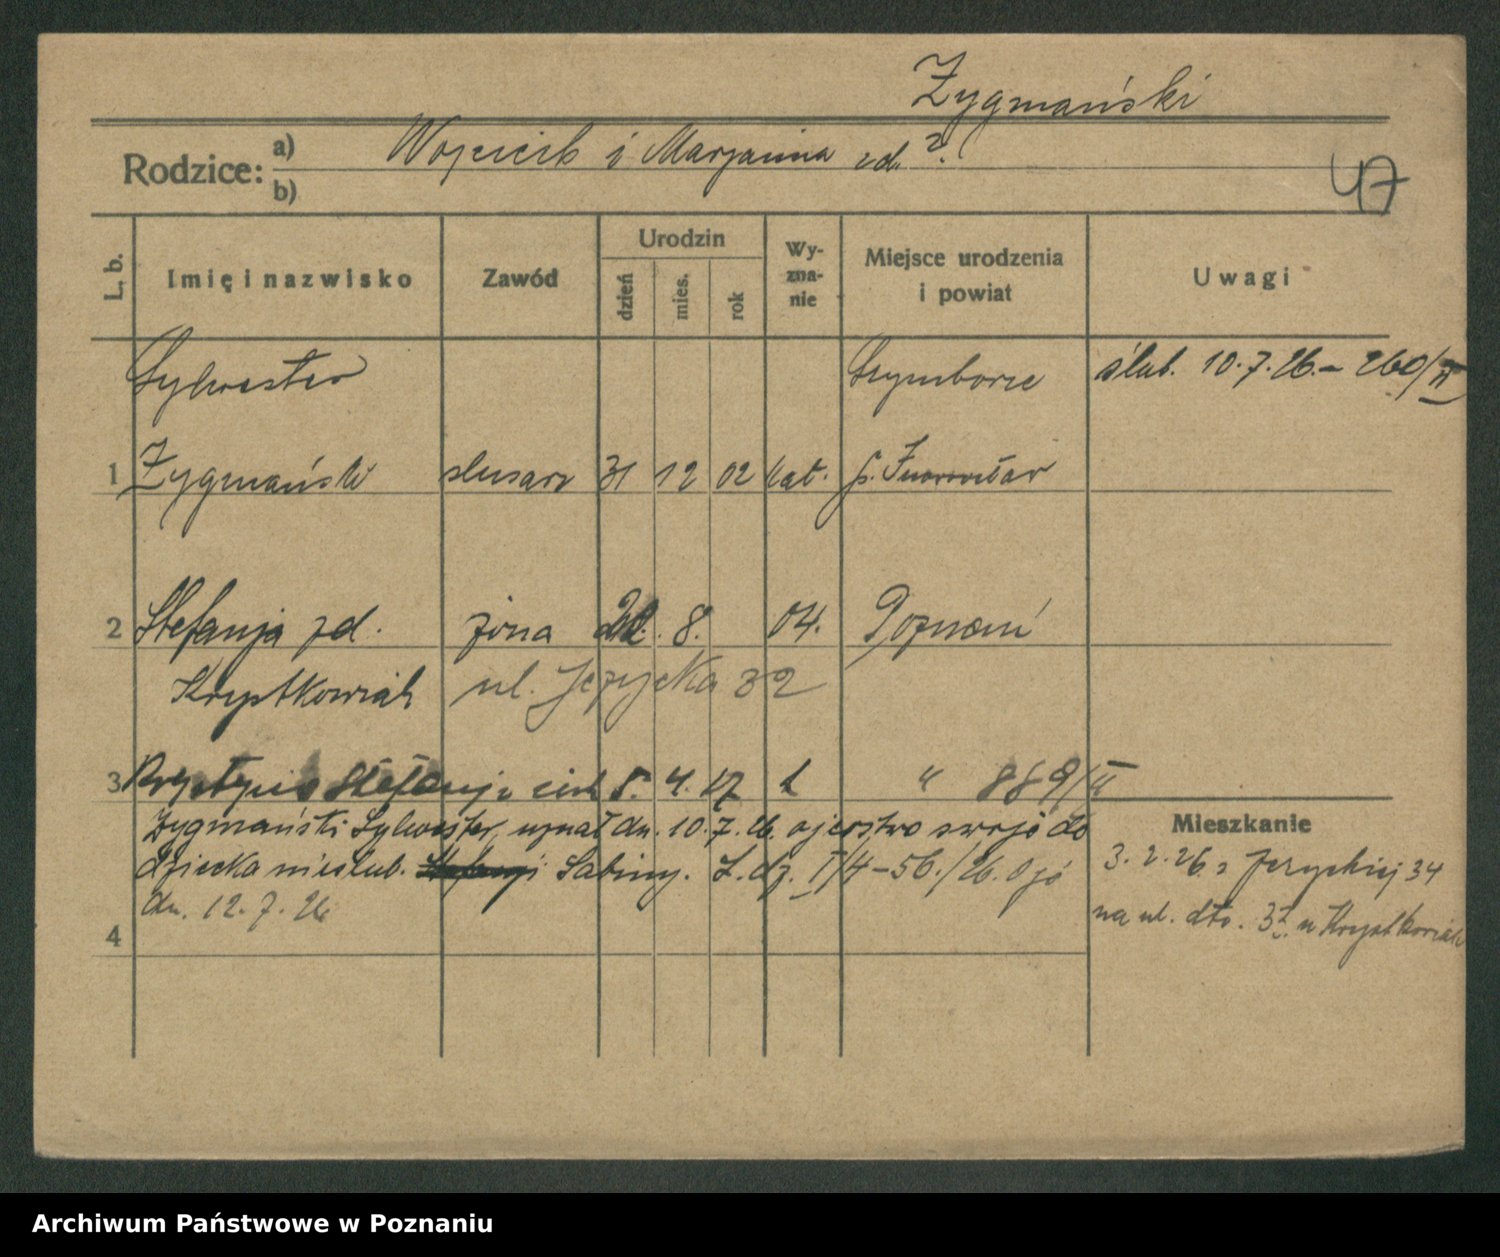 Zygmański
Rodzice: a) Wojciech i Marjanna zd. ?
b)
47
L. b. Imię i nazwisko Zawód Urodzin dzień mies. rok Wyznanie Miejsce urodzenia i powiat Uwagi
Sylwester Szymborze ślub. 10.7.26.– 260/II
1 Zygmański ślusarz 31 12 02 kat. p. Inowrocław
2 Stefanja zd. żona 8. 04. Poznań
Krystkowiak ul. Jeżycka 32
3 Stefanja 8. 4. " 889/II
Zygmański Sylwester, uznał dn. 10.7.26. ojcostwo swoje do
dziecka nieślub. Sabiny. L.dz. I/4–56./26.
dn. 12.7.26
4
Mieszkanie
3.2.26 z Jeżyckiej 34
na ul. dto. 32 u Krystkowiak
Archiwum Państwowe w Poznaniu